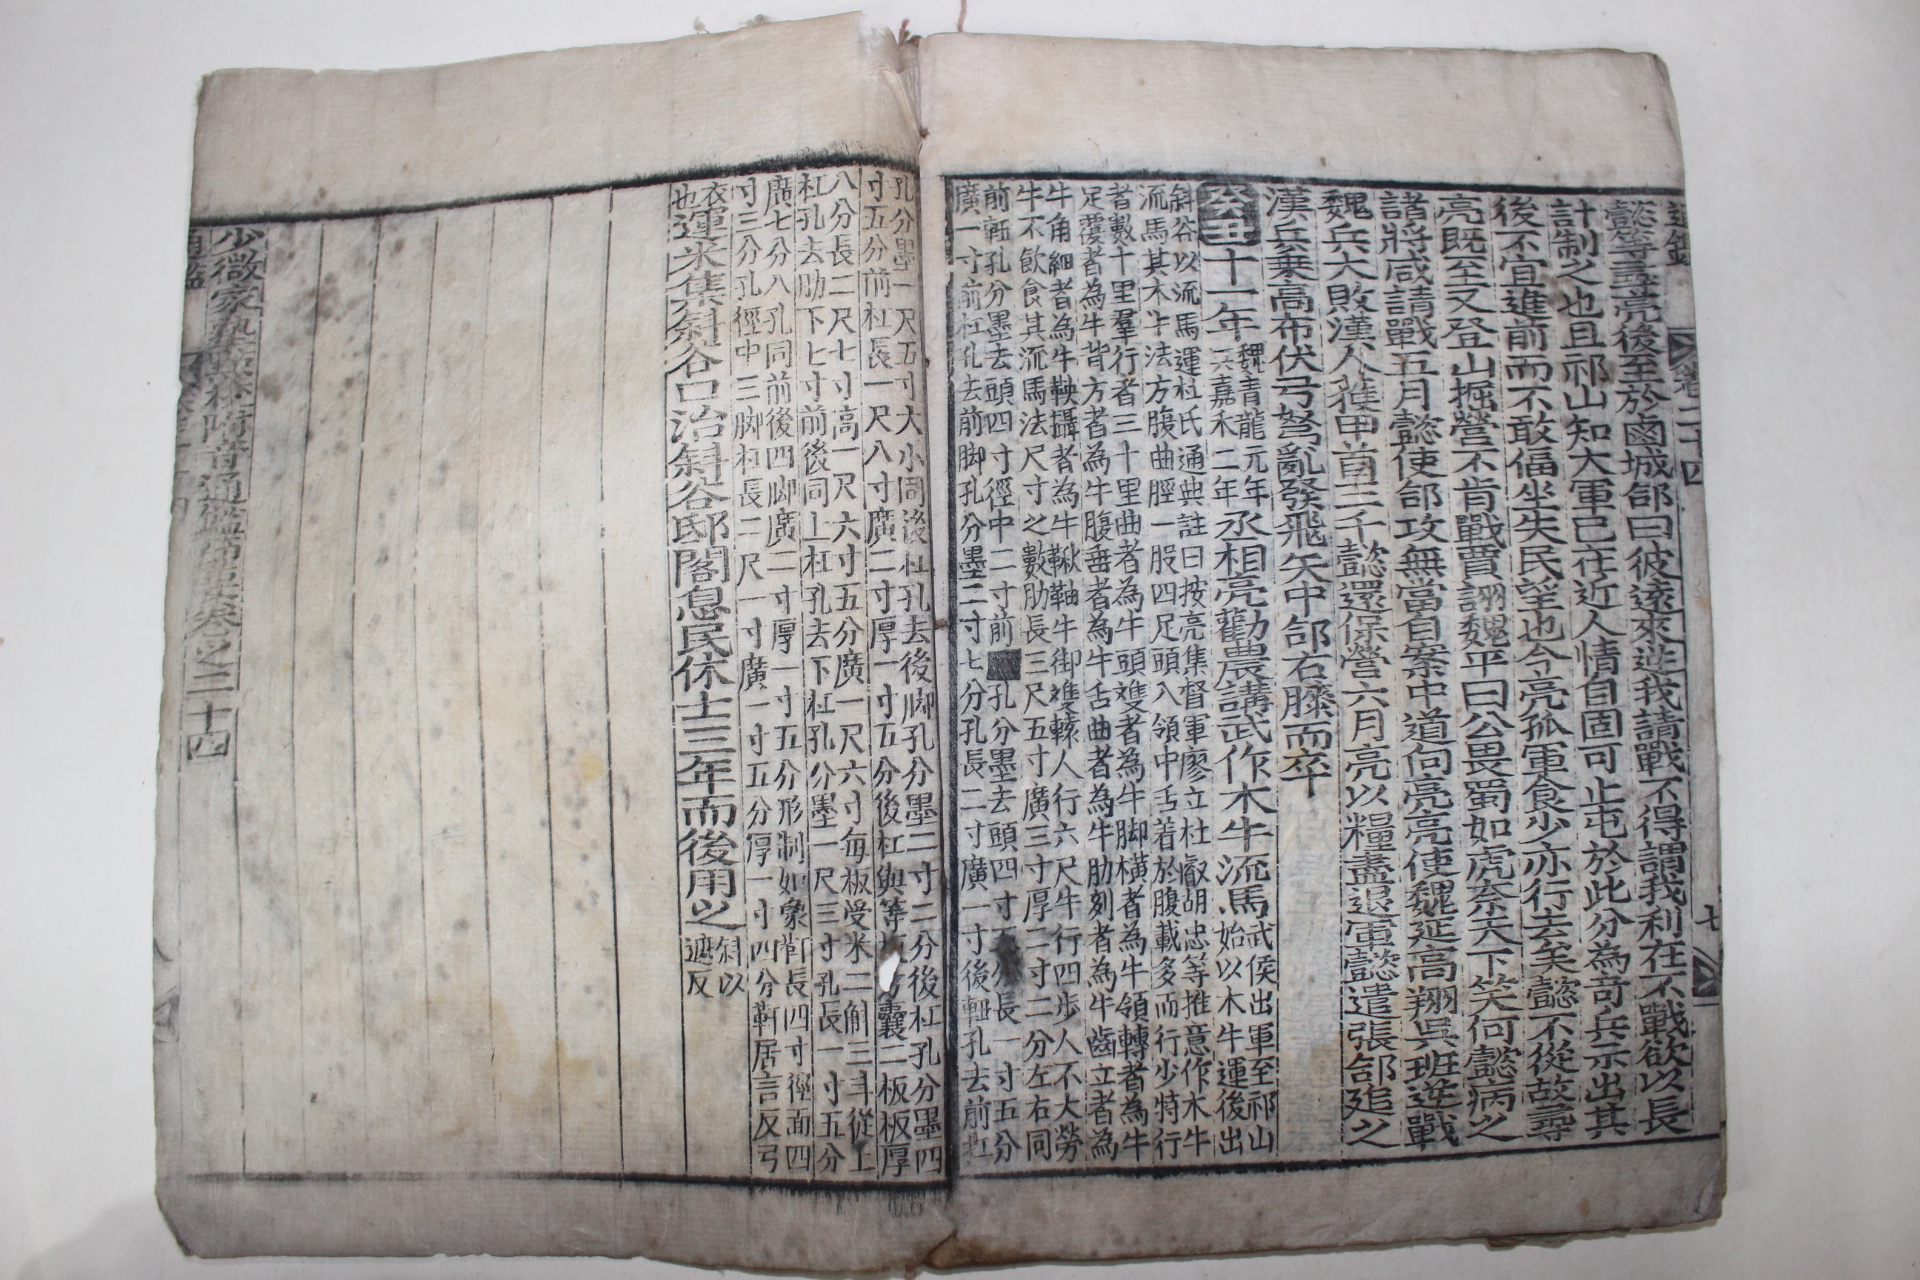 通鑑 卷二十四 七
懿等尋亮後至於鹵城郃曰彼遠來逆我請戰不得謂我利在不戰欲以長
計制之也且祁山知大軍已在近人情自固可止屯於此分為奇兵示出其
後不宜進前而不敢偪坐失民望也今亮孤軍食少亦行去矣懿不從故尋
亮既至又登山掘營不肯戰賈詡魏平曰公畏蜀如虎奈天下笑何懿病之
諸將咸請戰五月懿使郃攻無當自案中道向亮亮使魏延高翔吳班逆戰
魏兵大敗漢人獲甲首三千懿還保營六月亮以糧盡退軍懿遣張郃追之
漢兵乘高布伏弓弩亂發飛矢中郃右膝而卒
癸丑十一年
魏青龍元年
吳嘉禾二年
丞相亮勸農講武作木牛流馬
武侯出軍至祁山
始以木牛運後出
斜谷以流馬運杜氏通典註曰按亮集督軍廖立杜叡胡忠等推意作木牛
流馬其木牛法方腹曲脛一股四足頭入領中舌著於腹載多而行少特行
者數十里羣行者三十里曲者為牛頭雙者為牛脚橫者為牛領轉者為牛
足覆者為牛背方者為牛腹垂者為牛舌曲者為牛肋刻者為牛齒立者為
牛角細者為牛鞅攝者為牛鞦軸牛御雙轅人行六尺牛行四步人不大勞
牛不飲食其流馬法尺寸之數肋長三尺五寸廣三寸厚二寸二分左右同
前軸孔分墨去頭四寸徑中二寸前 孔分墨去頭四寸 分長一寸五分
廣一寸前杠孔去前脚孔分墨二寸七分孔長二寸廣一寸後軸孔去前杠
孔分墨一尺五寸大小同後杠孔去後脚孔分墨二寸二分後杠孔分墨四
寸五分前杠長一尺八寸廣二寸厚一寸五分後杠與等 方囊二板板厚
八分長二尺七寸高一尺六寸五分廣一尺六寸每板受米二斛三斗從上
杠孔去肋下七寸前後同上杠孔去下杠孔分墨一尺三寸孔長一寸五分
廣七分八孔同前後四脚廣二寸厚一寸五分形制如象靬長四寸徑面四
寸三分孔徑中三脚杠長二尺一寸廣一寸五分厚一寸四分靬居言反弓
衣
也
運米集斜谷口治斜谷邸閣息民休士三年而後用之
斜以
遮反
少微家塾點校附音通鑑節要卷之二十四